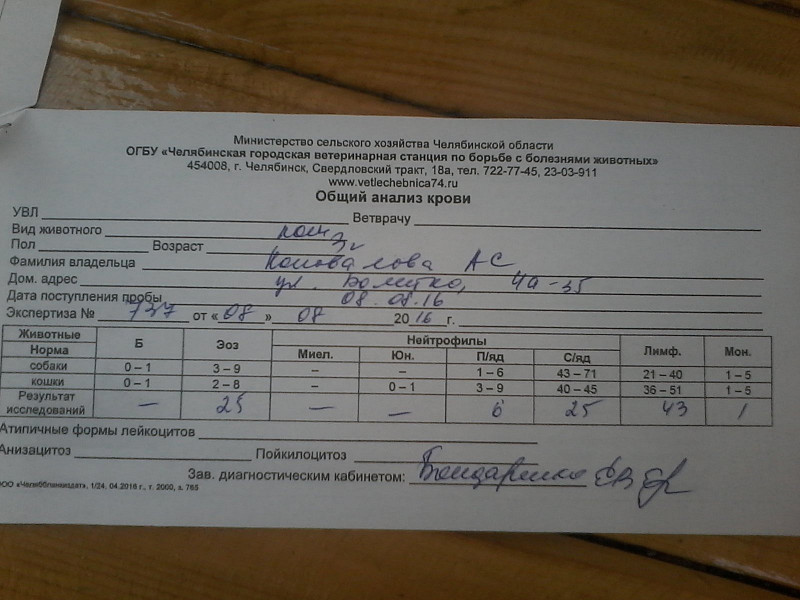 Министерство сельского хозяйства Челябинской области
ОГБУ «Челябинская городская ветеринарная станция по борьбе с болезнями животных»
454008, г. Челябинск, Свердловский тракт, 18а, тел. 722-77-45, 23-03-911
www.vetlechebnica74.ru
Общий анализ крови
УВЛ Ветврачу
Вид животного
Пол Возраст
Фамилия владельца Коновалова АС
Дом. адрес ул. 4а-35
Дата поступления пробы 08.08.16
Экспертиза № 737 от «08» 08 2016 г.
Животные Б Эоз Нейтрофилы Лимф. Мон.
Норма Миел. Юн. П/яд С/яд
собаки 0 – 1 3 – 9 – – 1 – 6 43 – 71 21 – 40 1 – 5
кошки 0 – 1 2 – 8 – 0 – 1 3 – 9 40 – 45 36 – 51 1 – 5
Результат исследований — 25 — — 6 25 43 1
Атипичные формы лейкоцитов
Анизацитоз Пойкилоцитоз
Зав. диагностическим кабинетом: Бондаренко ЕВ
ООО «Челябланкиздат», 1/24, 04.2016 г., т. 2000, з. 765